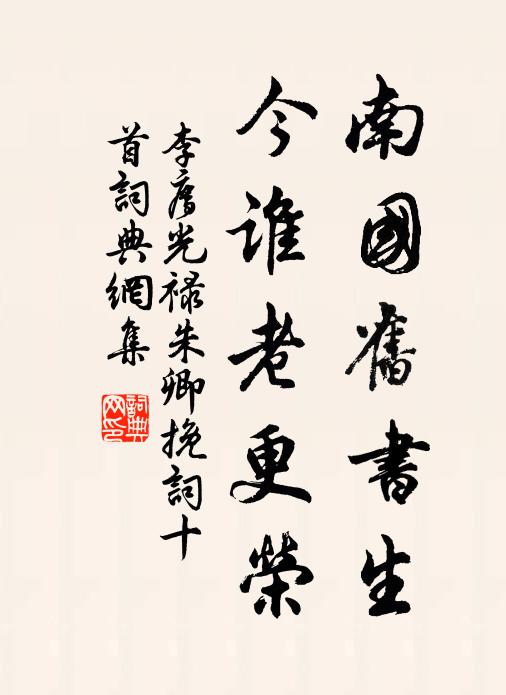 南國舊書生
今誰老更榮
李廌光祿朱卿挽詞十
首詞典網集
詞典網印